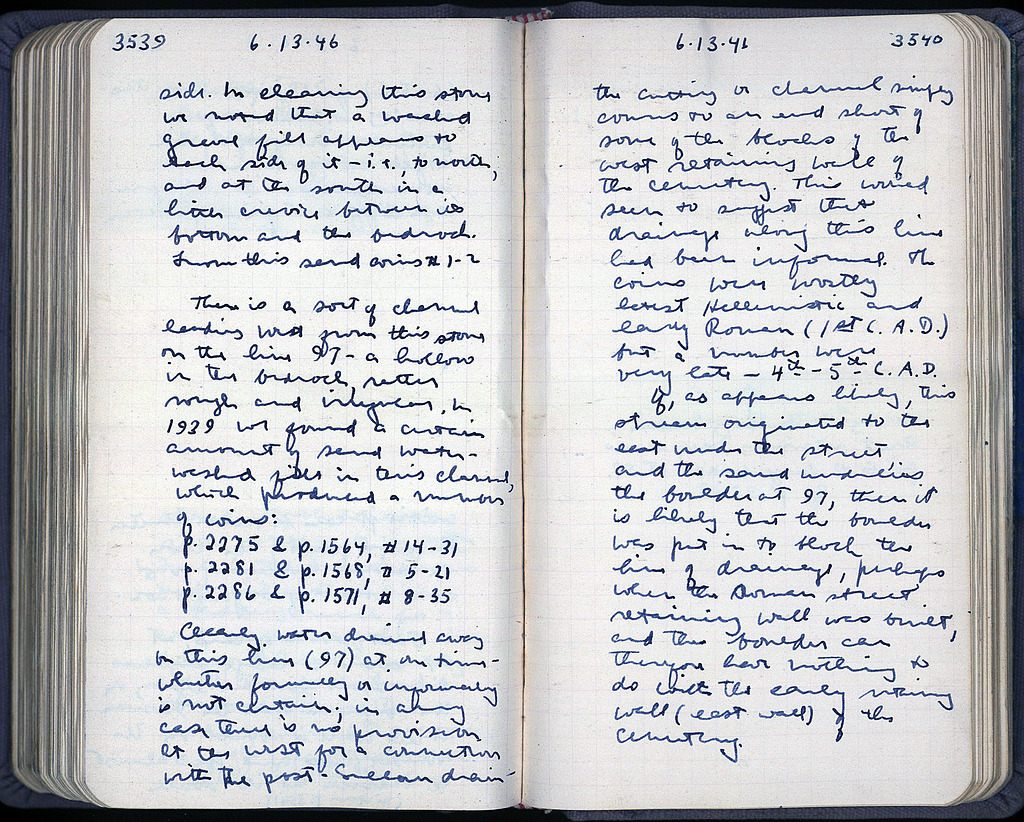 3539 6.13.46
side. In cleaning this stone
we noted that a washed
gravel fill appears to
each side of it – i.e., to north,
and at the south in a
little crevice between its
bottom and the bedrock.
From this sand coins #1-2
There is a sort of channel
leading west from this stone
on the line 97 – a hollow
in the bedrock, rather
rough and irregular. In
1939 we found a certain
amount of sand water-
washed fill in this channel,
which produced a number
of coins:
p. 2275 & p. 1564, #14-31
p. 2281 & p. 1568, # 5-21
p. 2286 & p. 1571, # 8-35
Clearly water drained away
on this line (97) at one time –
whether formally or informally
is not certain; in any
case there is no provision
at the west for a connection
with the post-Sullan drain –
6.13.41 3540
the cutting or channel simply
comes to an end short of
some of the blocks of the
west retaining wall of
the cemetery. This would
seem to suggest that
drainage along this line
had been informal. The
coins were mostly
latest Hellenistic and
early Roman (1st C. A.D.)
but a number were
very late – 4th – 5th C. A.D.
If, as appears likely, this
stream originated to the
east under the street,
and the sand underlies
the boulder at 97, then it
is likely that the boulder
was put in to block the
line of drainage, perhaps
when the Roman street
retaining wall was built,
and the boulder can
therefore have nothing to
do with the early retaining
wall (east wall) of the
cemetery.